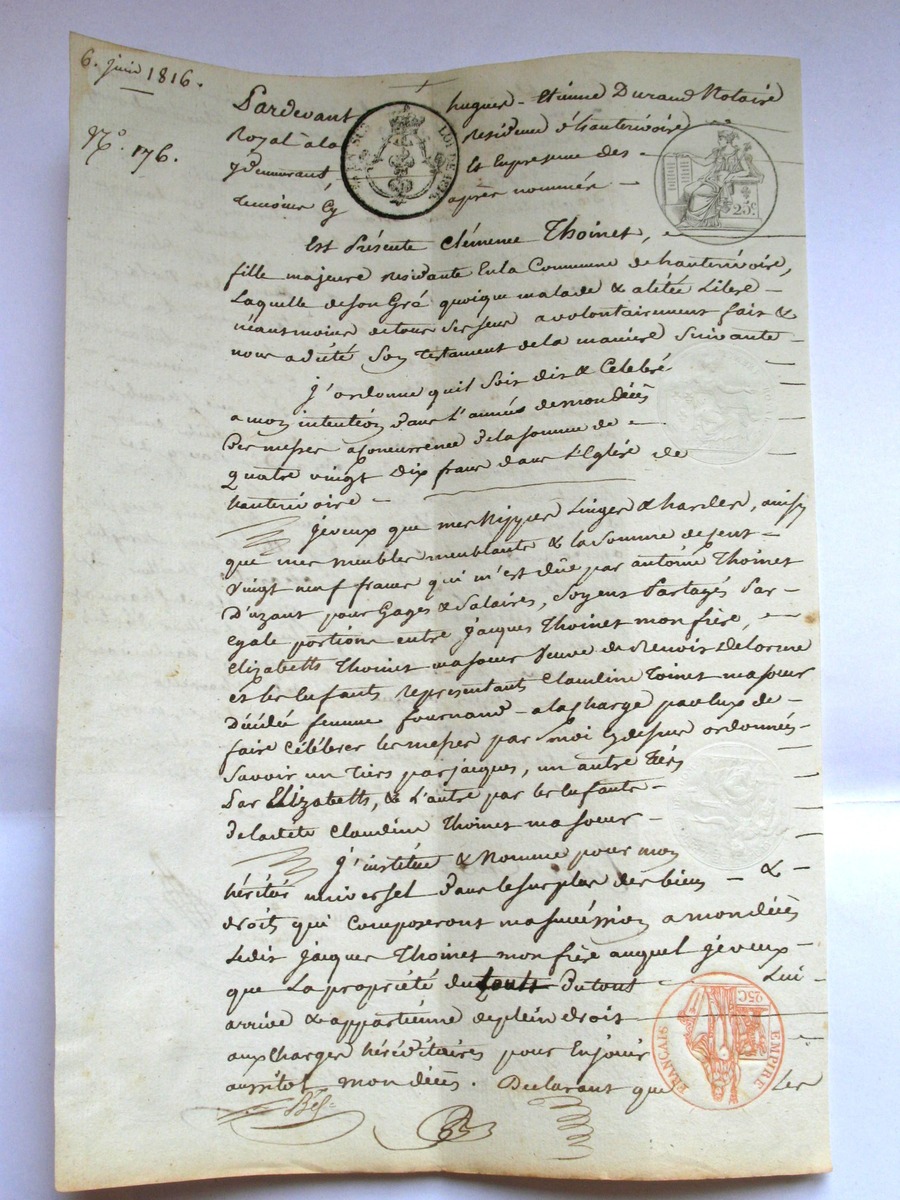 6. juin 1816.
N.° 176.
Pardevant hugues - Etienne Durand Notaire
Royal à la Residence d'hauterivoire
Et En presence des
temoins Cy après nommés
TIMBRE LOI DE 1816
25c
Est Présente Clémence Thoinet,
fille majeure residante En la Commune de hauterivoire,
Laquelle de son Gré quoique malade & alitée Libre
néantmoins de tous ses sens a volontairement fait &
nous a dicté son testament de la maniere suivante
J'ordonne quil soit dit & Celebré
a mon intention dans L'année de mon décès
Des messes a Concurrence de la somme de
quatre vingt dix francs dans L'Eglise de
hauterivoire
Je veux que mes Nippes Linges & hardes, ainsy
que mes meubles meublants & la somme de Cent
vingt neuf francs qui m'est due par antoine Thoinet
D'uzant pour Gages & Salaires, soyent Partagés Par
egale portions entre Jacques Thoinet mon frère,
Elizabeth Thoinet ma soeur Veuve de Benoit Delorme
et les Enfants representants Claudine Toinet ma soeur
décédée femme fournand - a la Charge par Eux de
faire Célébrer les messes par moi Cy dessus ordonnées
Savoir un tiers par jacques, un autre tiers
Par Elizabeth, & L'autre par les Enfants
de ladite Claudine Thoinet ma soeur
J'institue & Nomme pour mon
héritier universel dans le surplus des biens &
droits qui Composeront ma succession a mon décès
Ledit Jacques Thoinet mon frère auquel je veux
que La propriété du tout Lui
arrive & appartienne de plein droit
aux Charges héréditaires pour En jouir
aussitot mon décès. Declarant que Les
EMPIRE FRANÇAIS
25C